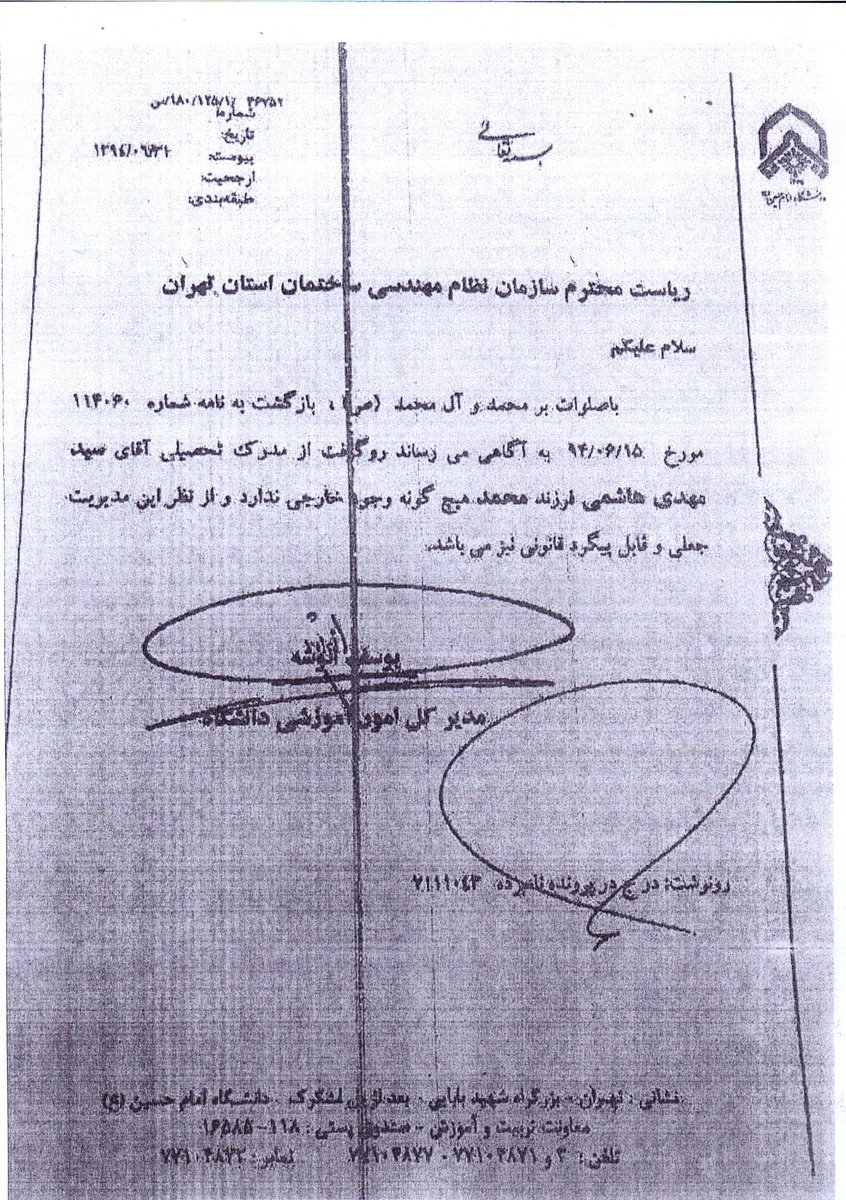 ۳۶۷۵۲ /۶۸۰/۱۲۵/۱/س
شماره:
تاریخ:
۱۳۹۴/۰۶/۳۱
پیوست:
ارجحیت:
طبقه‌بندی:
بسمه تعالی
دانشگاه امام حسین (ع)
ریاست محترم سازمان نظام مهندسی ساختمان استان تهران
سلام علیکم
باصلوات بر محمد و آل محمد (ص) ، بازگشت به نامه شماره ۱۱۴۰۶۰
مورخ ۹۴/۰۶/۱۵ به آگاهی می رساند روگرفت از مدرک تحصیلی آقای سید
مهدی هاشمی فرزند محمد هیچ گونه وجود خارجی ندارد و از نظر این مدیریت
جعلی و قابل پیگرد قانونی نیز می باشد.
یوسفی انوشه
مدیر کل امور آموزشی دانشگاه
رونوشت: درج در پرونده نامبرده ۷۱۱۱۰۴۳
نشانی : تهران - بزرگراه شهید بابایی - بعد از پل لشگرک - دانشگاه امام حسین (ع)
معاونت تربیت و آموزش - صندوق پستی : ۱۱۸-۱۶۵۸۵
تلفن : ۳ و ۷۷۱۰۴۸۷۱ - ۷۷۱۰۴۸۷۷ نمابر: ۷۷۱۰۴۸۷۲